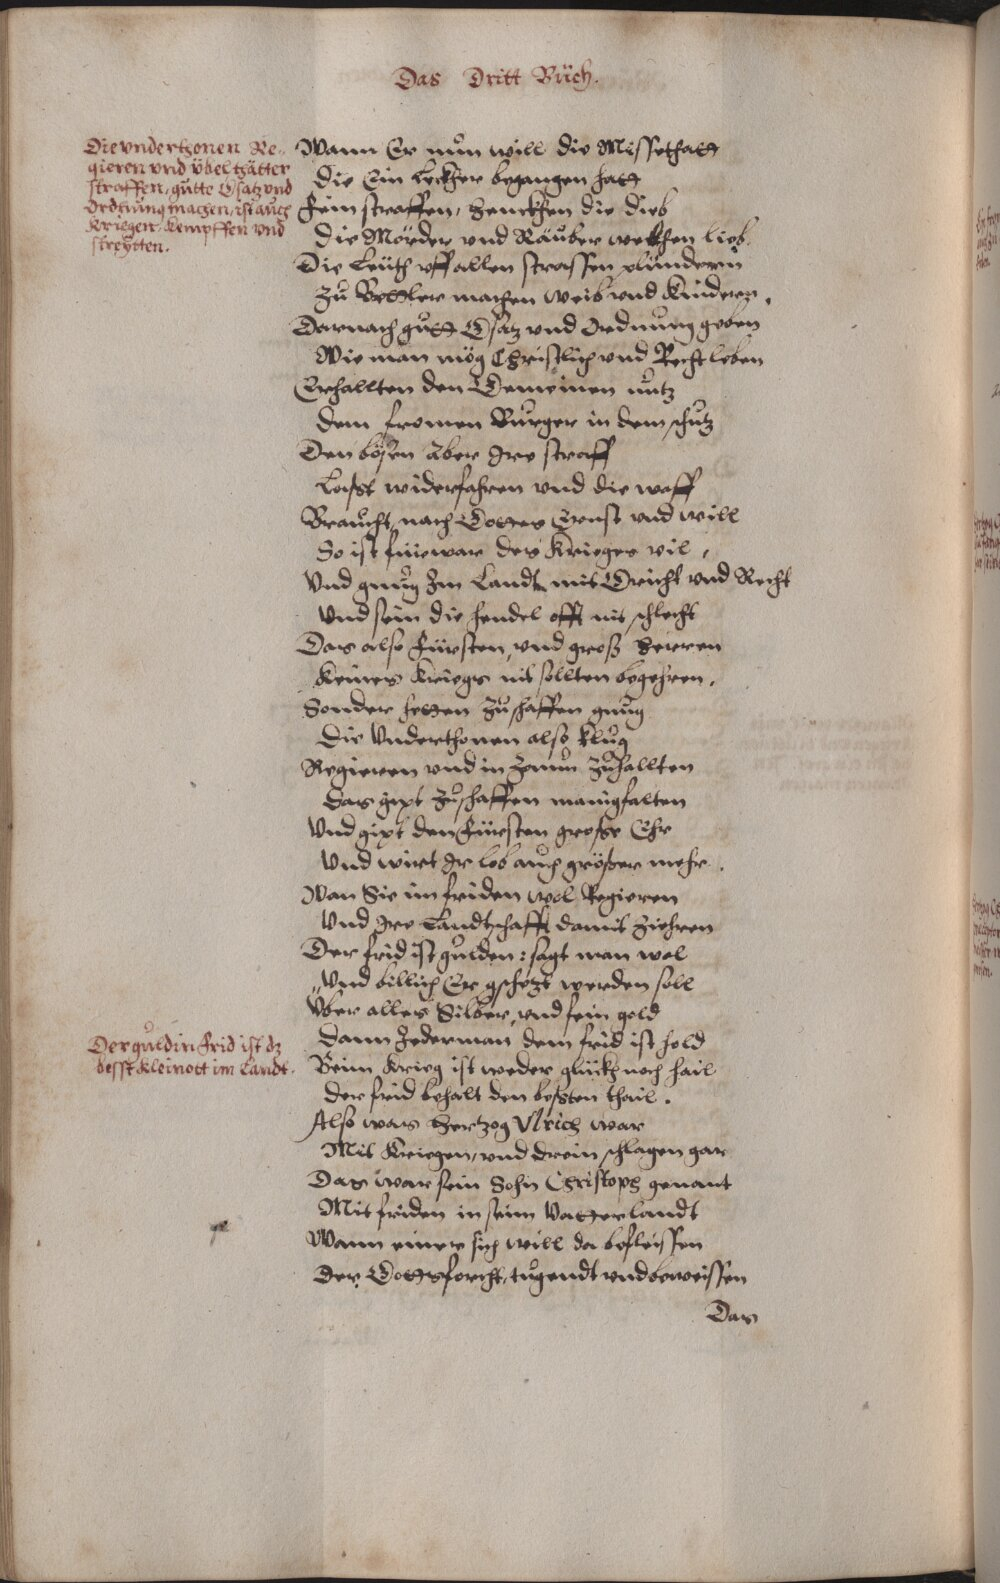 Das Dritt Bůch.
Die vnderthonen Re-
gieren vnd übelthätter
straffen, gůtte Gsatz vnd
Ordnung machen, ist auch
Kriegen, kempffen vnd
streytten.
Wann Er nůn will die Missethatt
Die Ein lecker begangen hatt
Fein straffen, henckhen die dieb
Die Mörder vnd Räuber welchen lieb
Die Leüth vff allen strassen plündern
Zů Bettler machen weib vnd kindern.
Darnach gůtt Gsatz vnd Ordnung geben
Wie man mög Christlich vnd Recht leben
Erhallten den Gemeinen nůtz
dem fromen Burger in dem schůtz
Den bösen aber Ire straff
Lasst widerfahren vnd die waff
Braucht, nach Gottes Ernst vnd will
So ist fürwar des Krieges vil,
Vnd gnůg Im Landt mit Gricht vnd Recht
Vnd sein die hendel offt nit schlecht
Das also Fürsten, vnd gross Herren
Keines kriegs nit sollten begehren.
Sonder hetten zůschaffen gnůg
Die Vnderthonen also klůg
Regieren vnd in zaum zůhallten
Das gipt zůschaffen manigfalten
Vnd gipt den Fürsten grosse Ehr
Vnd wirt Ir lob auch grösser mehr.
Wan Sie im friden wol Regieren
Vnd Ire Landtschafft damit ziehren
Der frid ist gulden: sagt man wol
„Vnd billich Er gschetzt werden soll
Vber alles Silber, vnd fein gold
Dann Jederman dem frid ist hold
Der guldin Frid ist dz
besst Kleinott im Landt.
Beim Krieg ist weder glückh noch hail
der frid behalt den besten thail.
Also was Hertzog Vlrich war
Mit Kriegen, vnd drein schlagen gar
Das war sein Sohn Christoph genant
Mit friden in seim Vatterlandt
Wann einer sich will da befleissen
Der Gottsforcht, tugendt vnd beweissen
Das